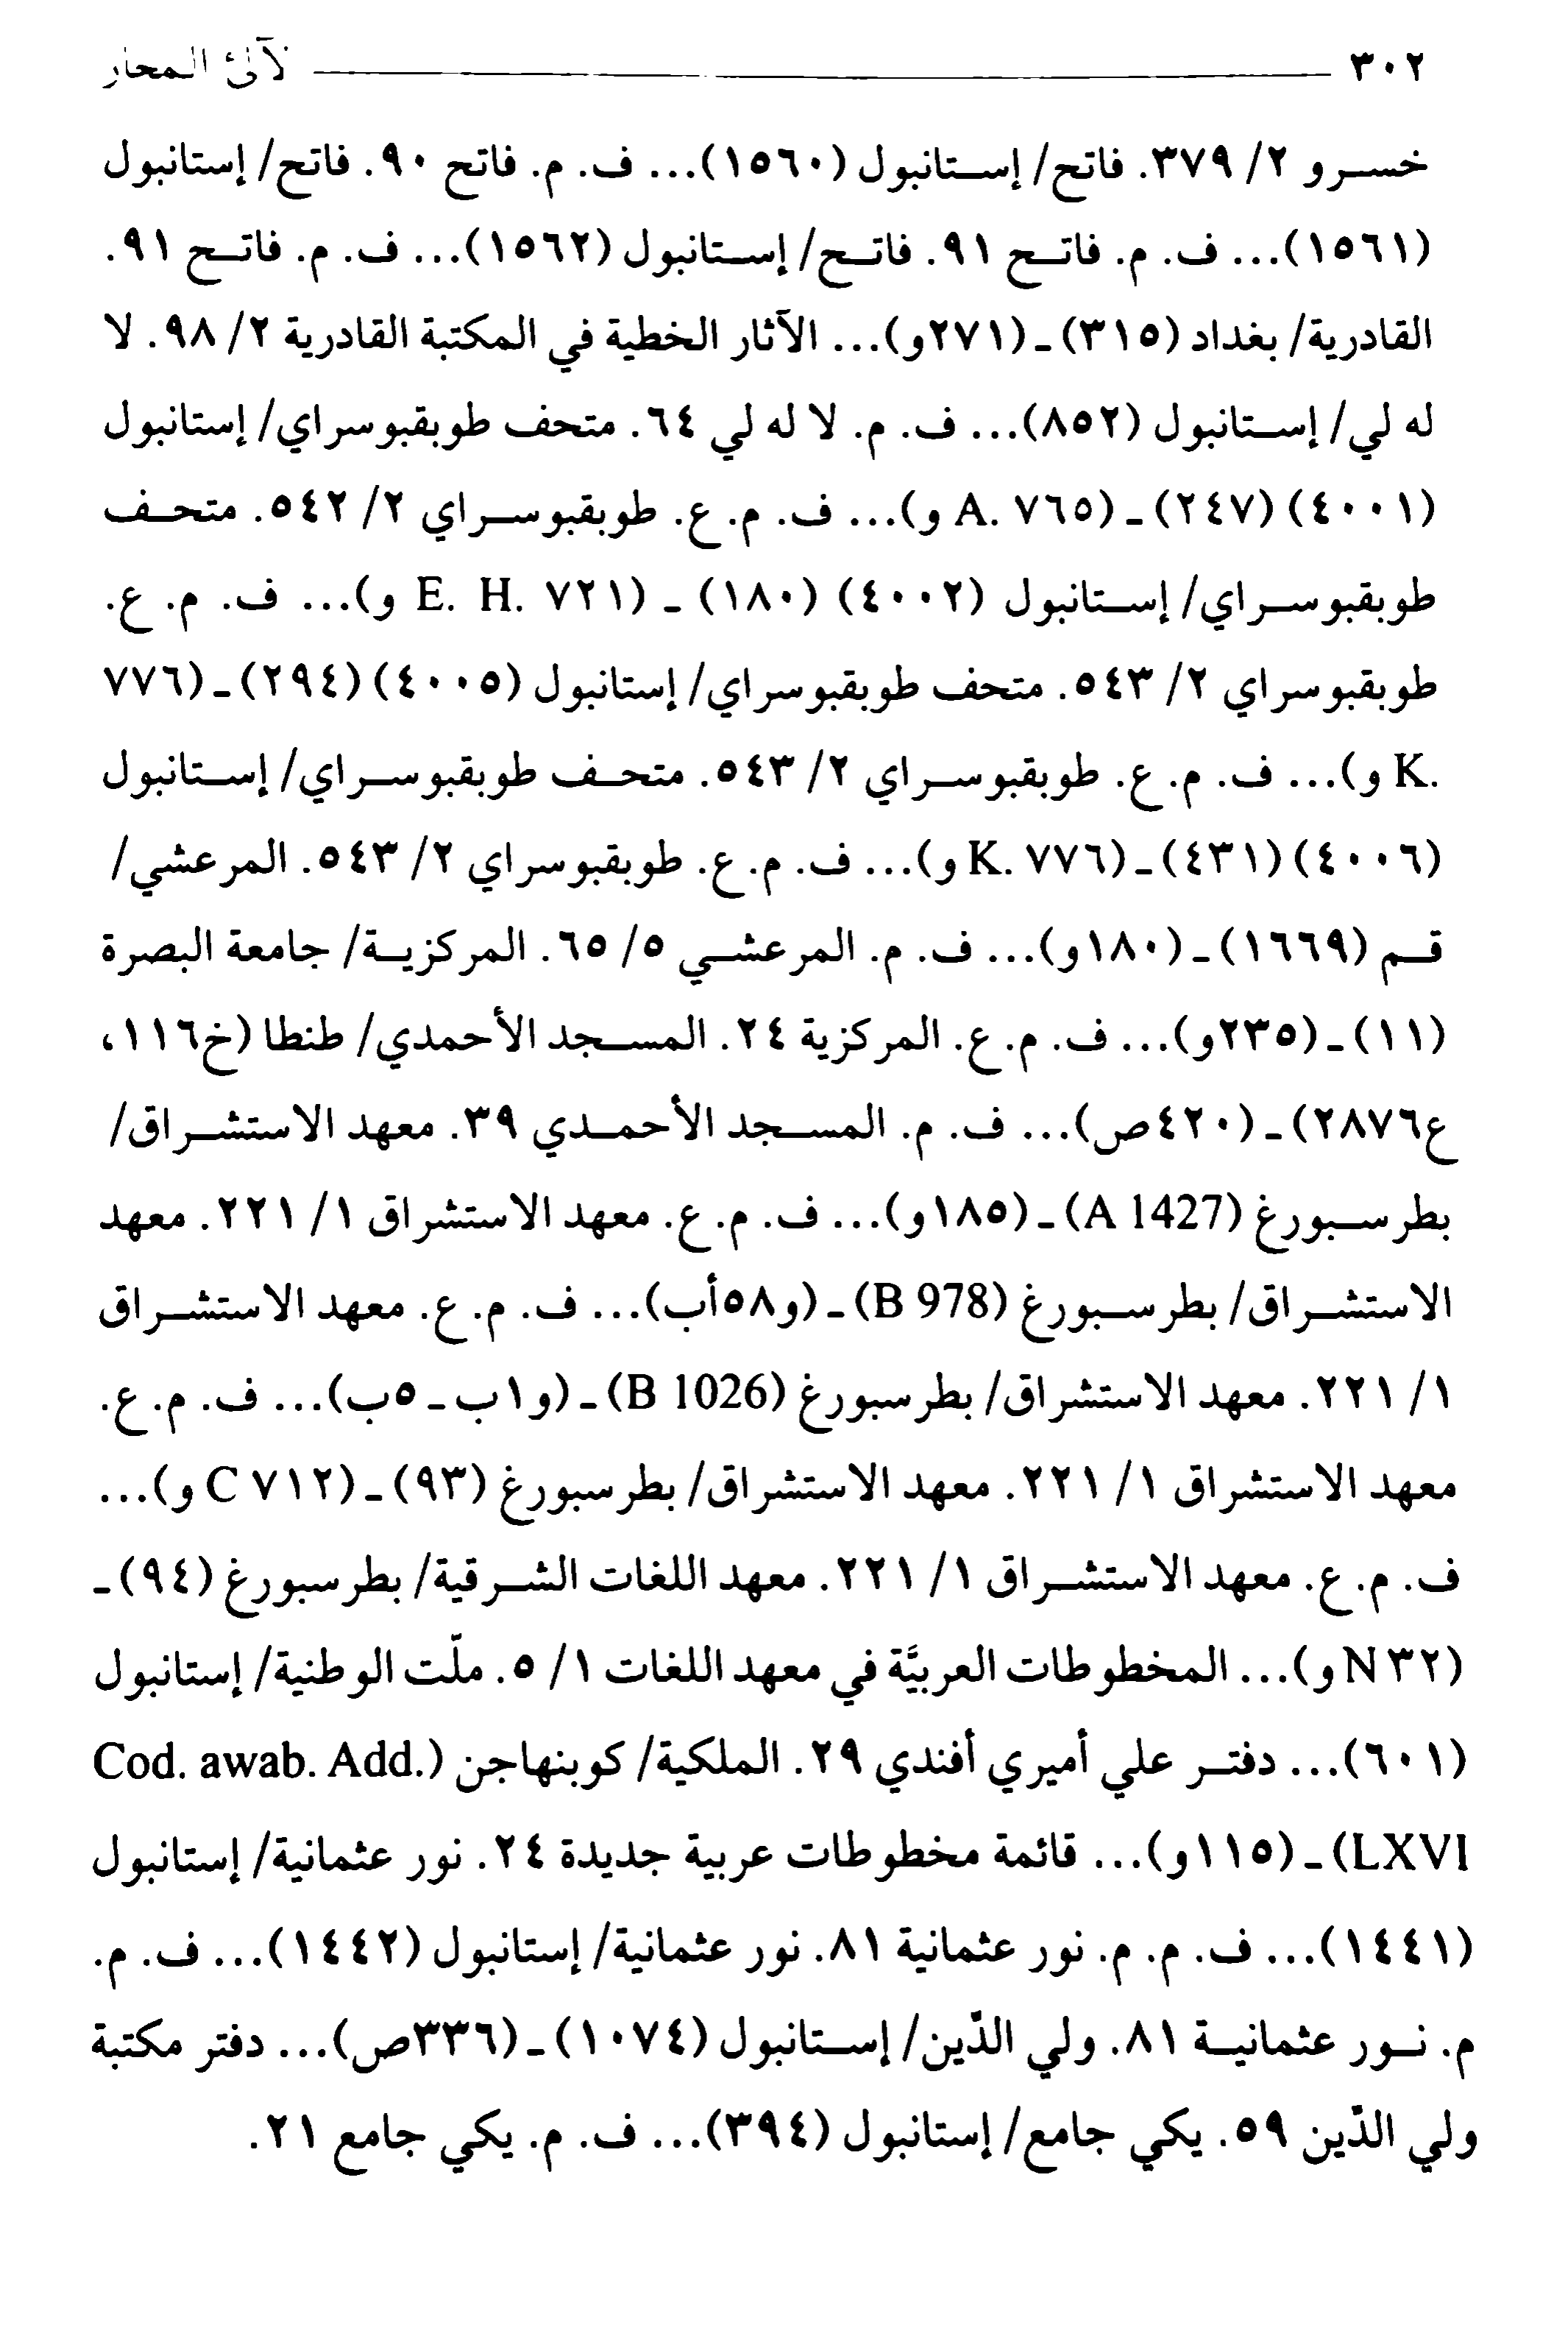 ٣٠٢ لآلئ المحار
خسرو ٢/ ٣٧٩. فاتح/ إستانبول (١٥٦٠)... ف. م. فاتح ٩٠. فاتح/ إستانبول
(١٥٦١)... ف. م. فاتح ٩١. فاتح/ إستانبول (١٥٦٢)... ف. م. فاتح ٩١.
القادرية/ بغداد (٣١٥) ـ (٢٧١و)... الآثار الخطية في المكتبة القادرية ٢/ ٩٨. لا
له لي/ إستانبول (٨٥٢)... ف. م. لا له لي ٦٤. متحف طوبقبوسراي/ إستانبول
(٤٠٠١) (٢٤٧) ـ (٧٦٥ .A و)... ف. م. ع. طوبقبوسراي ٢/ ٥٤٢. متحف
طوبقبوسراي/ إستانبول (٤٠٠٢) (١٨٠) ـ (٧٢١ .E. H و)... ف. م. ع.
طوبقبوسراي ٢/ ٥٤٣. متحف طوبقبوسراي/ إستانبول (٤٠٠٥) (٢٩٤) ـ (٧٧٦
.K و)... ف. م. ع. طوبقبوسراي ٢/ ٥٤٣. متحف طوبقبوسراي/ إستانبول
(٤٠٠٦) (٤٣١) ـ (٧٧٦ .K و)... ف. م. ع. طوبقبوسراي ٢/ ٥٤٣. المرعشي/
قم (١٦٦٩) ـ (١٨٠و)... ف. م. المرعشي ٥/ ٦٥. المركزية/ جامعة البصرة
(١١) ـ (٢٣٥و)... ف. م. ع. المركزية ٢٤. المسجد الأحمدي/ طنطا (خ١١٦،
ع٢٨٧٦) ـ (٤٢٠ص)... ف. م. المسجد الأحمدي ٣٩. معهد الاستشراق/
بطرسبورغ (A 1427) ـ (١٨٥و)... ف. م. ع. معهد الاستشراق ١/ ٢٢١. معهد
الاستشراق/ بطرسبورغ (B 978) ـ (و٥٨أب)... ف. م. ع. معهد الاستشراق
١/ ٢٢١. معهد الاستشراق/ بطرسبورغ (B 1026) ـ (و١ب ـ ٥ب)... ف. م. ع.
معهد الاستشراق ١/ ٢٢١. معهد الاستشراق/ بطرسبورغ (٩٣) ـ (٧١٢ C و)...
ف. م. ع. معهد الاستشراق ١/ ٢٢١. معهد اللغات الشرقية/ بطرسبورغ (٩٤) ـ
(٣٢ N و)... المخطوطات العربيَّة في معهد اللغات ١/ ٥. ملّت الوطنية/ إستانبول
(٦٠١)... دفتر علي أميري أفندي ٢٩. الملكية/ كوبنهاجن (Cod. awab. Add.
LXVI) ـ (١١٥و)... قائمة مخطوطات عربية جديدة ٢٤. نور عثمانية/ إستانبول
(١٤٤١)... ف. م. م. نور عثمانية ٨١. نور عثمانية/ إستانبول (١٤٤٢)... ف. م.
م. نور عثمانية ٨١. ولي الدّين/ إستانبول (١٠٧٤) ـ (٣٣٦ص)... دفتر مكتبة
ولي الدّين ٥٩. يكي جامع/ إستانبول (٣٩٤)... ف. م. يكي جامع ٢١.